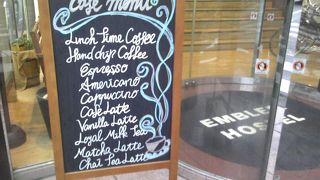 Cafe Menu
Lunch Time Coffee
Hand drip Coffee
Espresso
Americano
Cappuccino
Cafe Latte
Vanilla Latte
Loyal Milk Tea
Matcha Latte
Chai Tea Latte
EMBLEM
HOSTEL